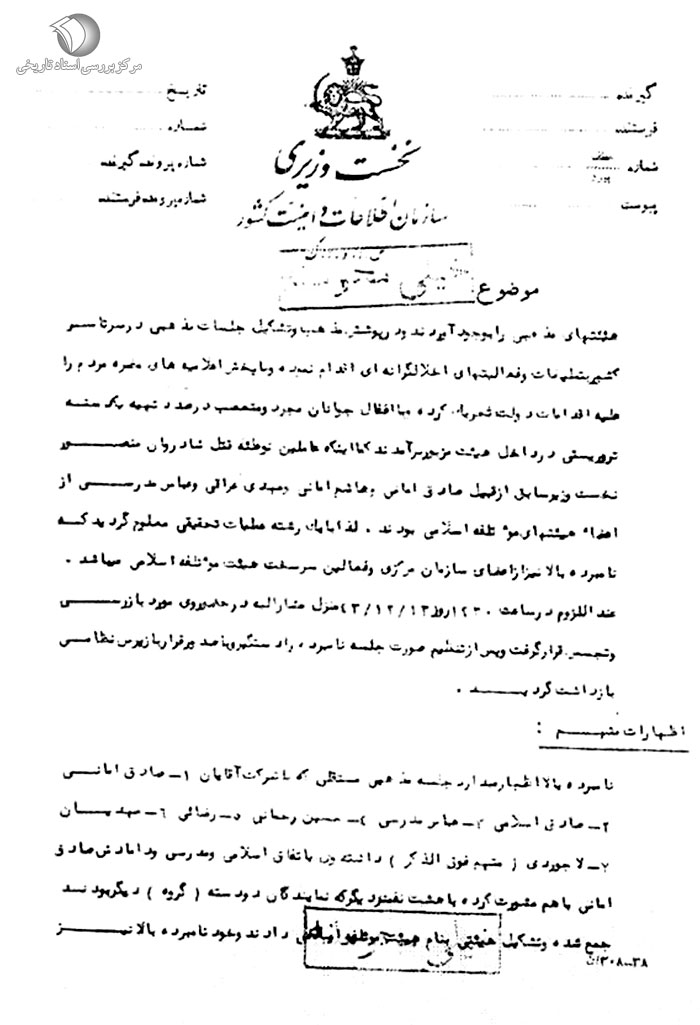 مرکز بررسی اسناد تاریخی
گیرنده
تاریخ
فرستنده
شماره
شماره
شماره پرونده گیرنده
پیوست
شماره پرونده فرستنده
نخست وزیری
سازمان اطلاعات و امنیت کشور
موضوع
هیئتهای مذهبی را بوجود آوردند و در پوشش مذهب و تشکیل جلسات مذهبی در سرتاسر
کشور بتبلیغات و فعالیتهای اخلالگرانه ای اقدام نموده و با پخش اعلامیه های مضره مردم را
علیه اقدامات دولت تحریک کرده و با اغفال جوانان مجرد و متعصب درصدد تهیه یکدسته
تروریستی در داخل هیئت مزبور برآمدند کما اینکه عاملین توطئه قتل شادروان منصور
نخست وزیر سابق از قبیل صادق امانی و هاشم امانی و مهدی عراقی و عباس مدرسی از
اعضاء هیئتهای موتلفه اسلامی بودند . لذا با یک رشته عملیات تحقیقی معلوم گردید که
نامبرده بالا نیز از اعضای سازمان مرکزی و فعالین سرسخت هیئت موتلفه اسلامی میباشد .
عند اللزوم در ساعت روز منزل مشارالیه در حضور وی مورد بازرسی
و تجسس قرار گرفت و پس از تنظیم صورت جلسه نامبرده را دستگیر و با صدور قرار بازپرس نظامی
بازداشت گردید .
اظهارات متهم :
نامبرده بالا اظهار میدارد جلسه مذهبی مستقلی که با شرکت آقایان ۱ـ صادق امانی
۲ـ صادق اسلامی ۳ـ عباس مدرسی ۴ـ حسین رحمانی ۵ـ رضائی ۶ـ مهدیان
۷ـ لاجوردی ( متهم فوق الذکر ) داشته و با اتفاق اسلامی و مدرسی و صادق
امانی با هم مشورت کرده با هشت نفر دیگر که نمایندگان دو دسته ( گروه ) دیگر بودند
جمع شده و تشکیل هیئتی بنام هیئت موتلفه اسلامی دادند و خود نامبرده بالا نیز